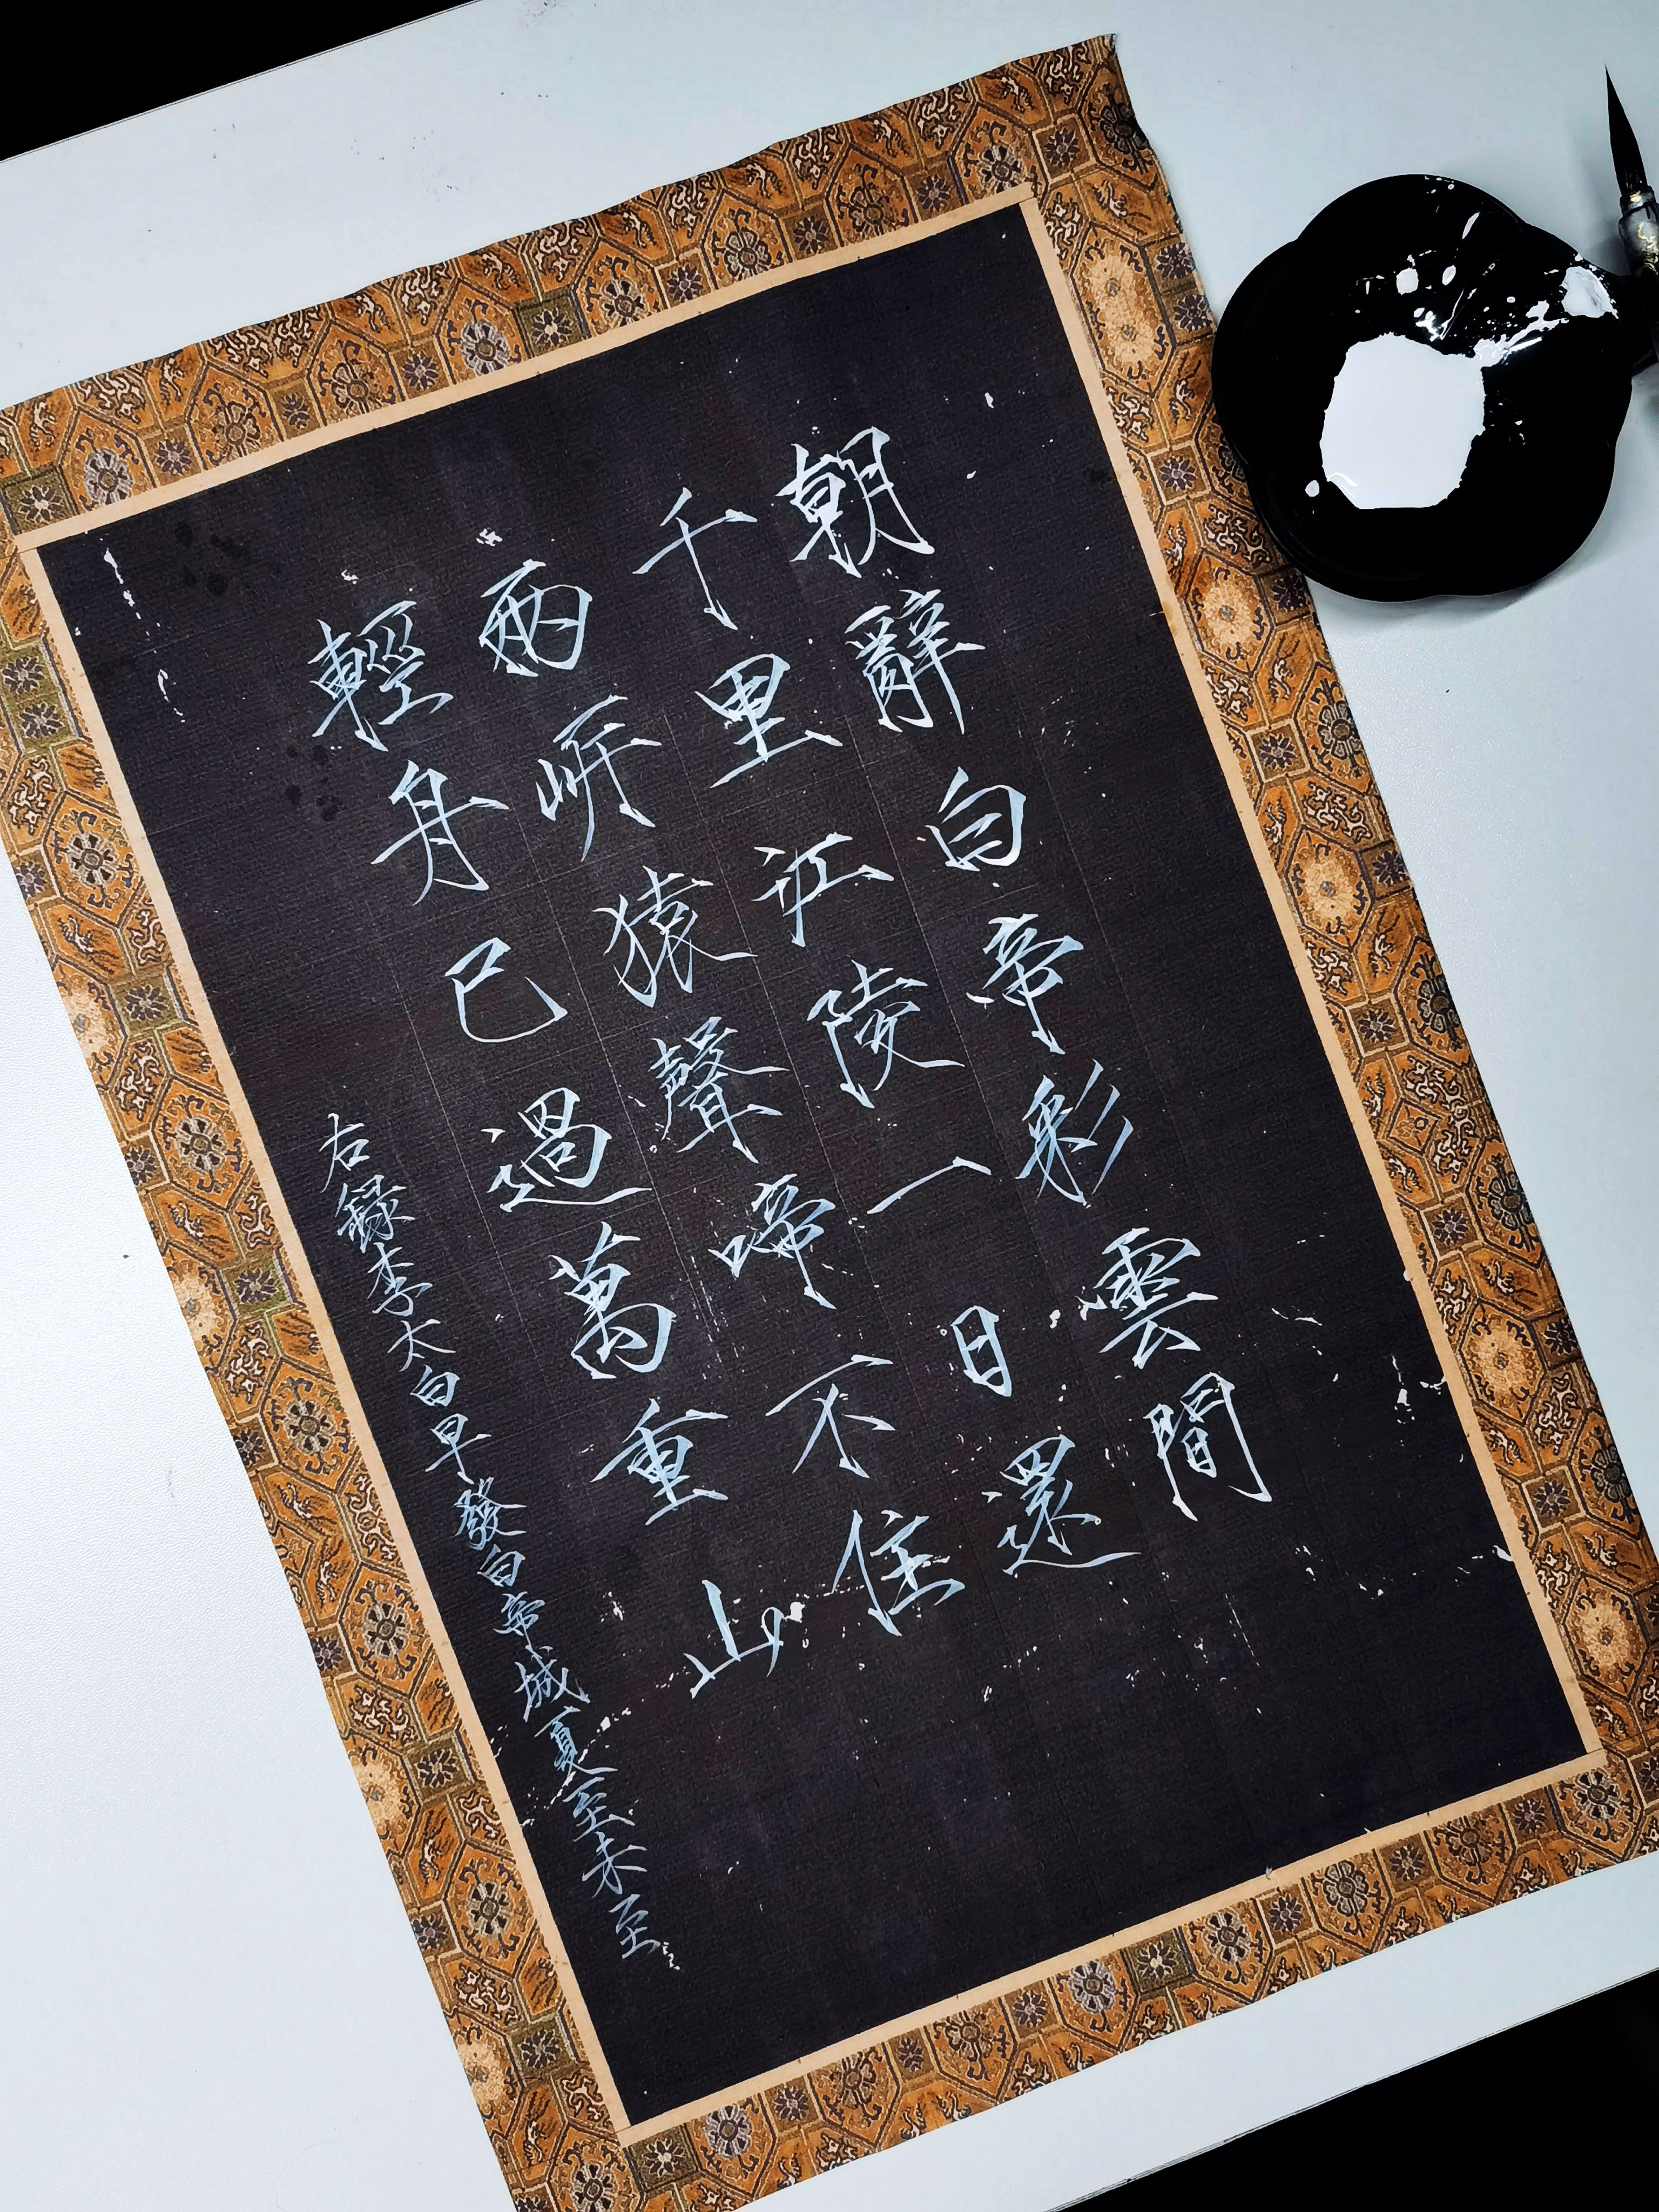 朝辭白帝彩雲間
千里江陵一日還
兩岸猿聲啼不住
輕舟已過萬重山
右録李太白早發白帝城夏至未至